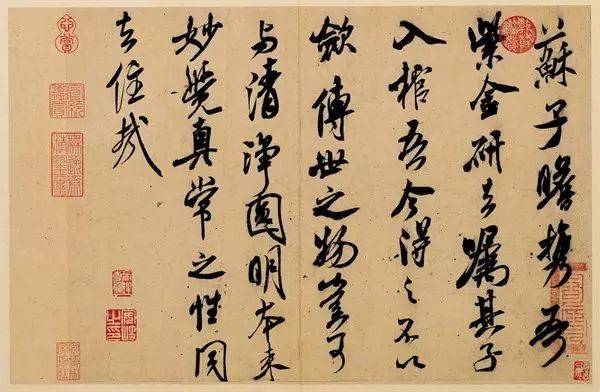 蘇子瞻攜吾
紫金研去囑其子
入棺吾今得之不以
斂傳世之物豈可
与清淨圓明本來
妙覺真常之性同
去住哉